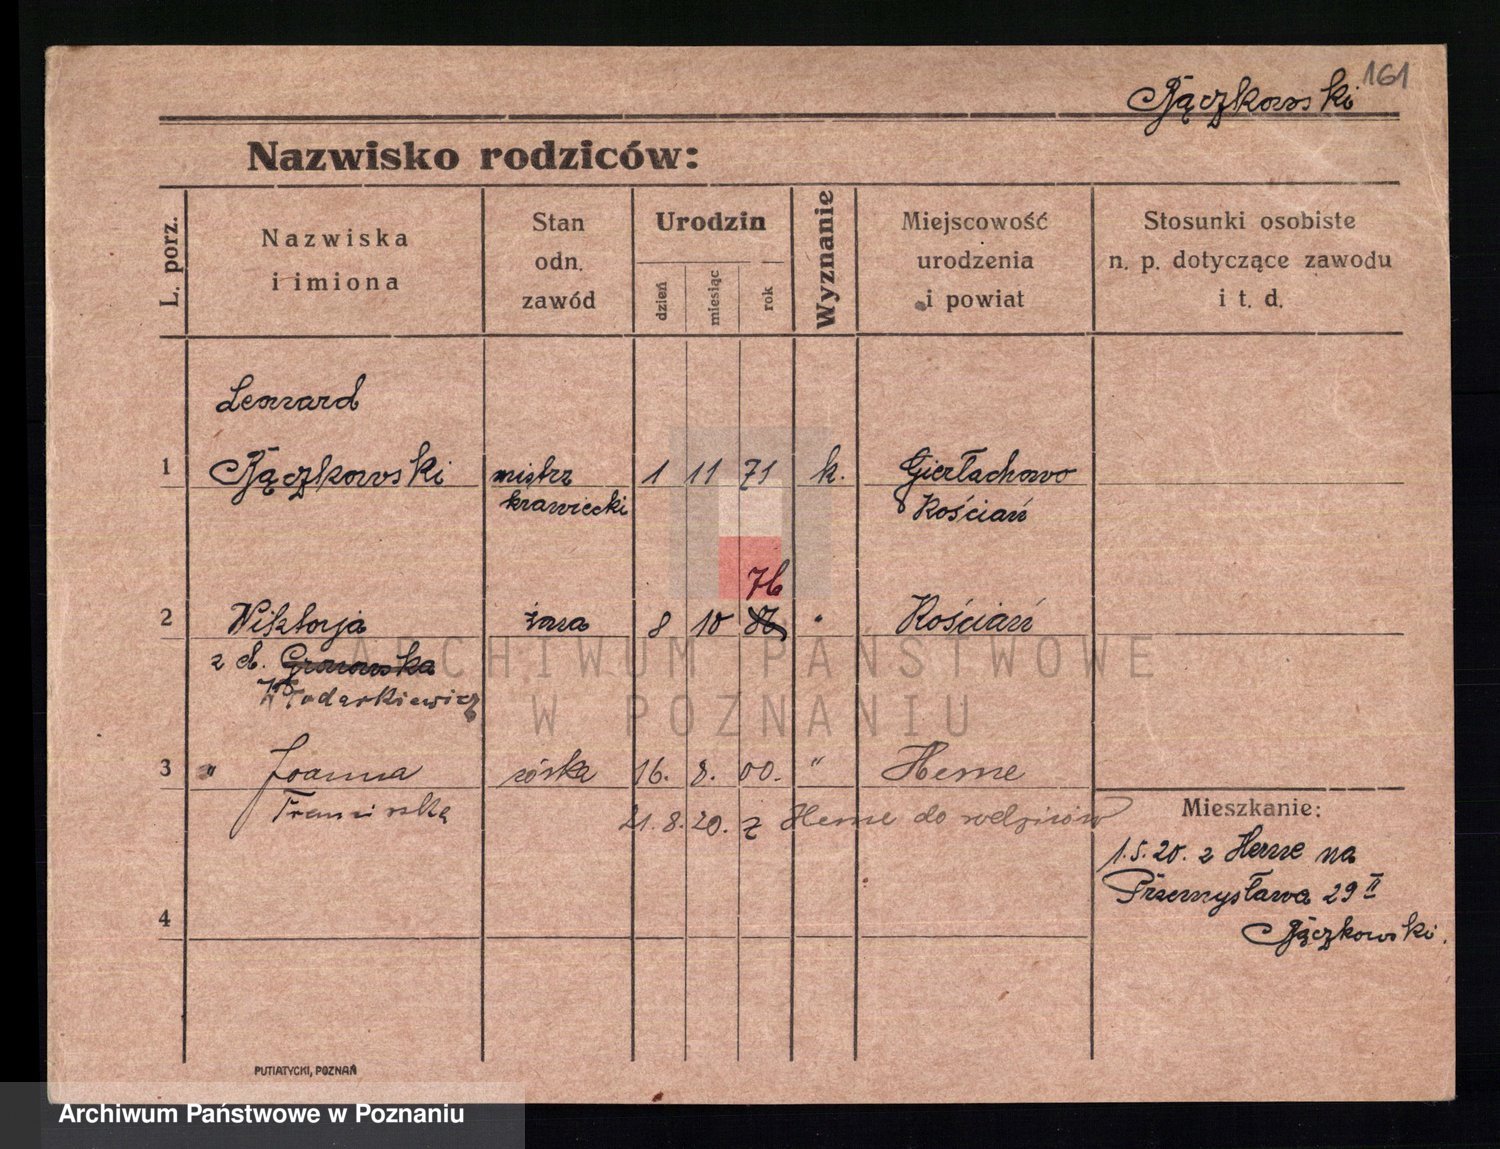 161
Bączkowski
Nazwisko rodziców:
L. porz.
Nazwiska
i imiona
Stan
odn.
zawód
Urodzin
dzień
miesiąc
rok
Wyznanie
Miejscowość
urodzenia
i powiat
Stosunki osobiste
n. p. dotyczące zawodu
i t. d.
Leonard
1 Bączkowski mistrz 1 11 71 k. Gierłachowo
krawiecki Kościan
76
2 Wiktorja żona 8 10 Kościan
z d. Gronowska
Włodarkiewicz
3 " Joanna córka 16. 8. 00. " Herne
Franciszka 21.8.20. z Herne do rodziców
Mieszkanie:
1.5.20. z Herne na
Przemysława 29 II
Bączkowski.
4
PUTIATYCKI, POZNAŃ
ARCHIWUM PAŃSTWOWE
W POZNANIU
Archiwum Państwowe w Poznaniu